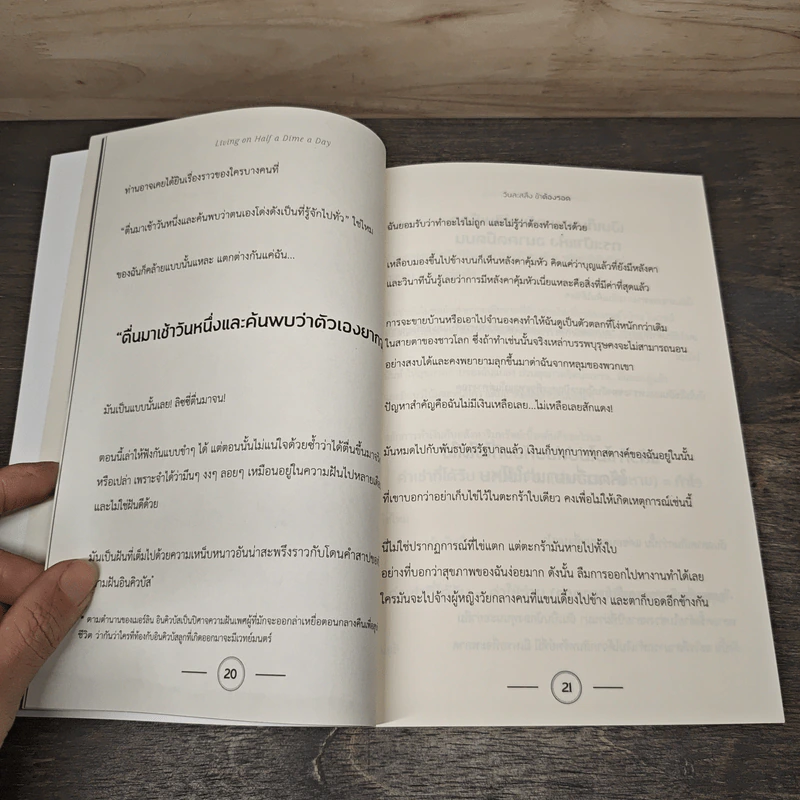 Living on Half a Dime a Day
ท่านอาจเคยได้ยินเรื่องราวของใครบางคนที่
"ตื่นมาเช้าวันหนึ่งและค้นพบว่าตนเองโด่งดังเป็นที่รู้จักไปทั่ว" ใช่ไหม
ของฉันก็คล้ายแบบนั้นแหละ แตกต่างกันแค่ฉัน...
"ตื่นมาเช้าวันหนึ่งและค้นพบว่าตัวเองยาก
มันเป็นแบบนั้นเลย! ลิซซี่ตื่นมาจน!
ตอนนี้เล่าให้ฟังกันแบบขำๆ ได้ แต่ตอนนั้นไม่แน่ใจด้วยซ้ำว่าได้ตื่นขึ้นมา
หรือเปล่า เพราะจำได้ว่ามึนๆ งงๆ ลอยๆ เหมือนอยู่ในความฝันไปหลาย
และไม่ใช่ฝันดีด้วย
มันเป็นฝันที่เต็มไปด้วยความเหน็บหนาวอันน่าสะพรึงราวกับโดนคำสาป
ความฝันอินคิวบัส*
* ตามตำนานของเมอร์ลิน อินคิวบัสเป็นปีศาจความฝันเพศผู้ที่มักจะออกล่าเหยื่อตอนกลางคืน
ชีวิต ว่ากันว่าใครที่ท้องกับอินคิวบัสลูกที่เกิดออกมาจะมีเวทย์มนตร์
20
วันละสลึง ข้าต้องรอด
ฉันยอมรับว่าทำอะไรไม่ถูก และไม่รู้ว่าต้องทำอะไรด้วย
เหลือบมองขึ้นไปข้างบนก็เห็นหลังคาคุ้มหัว คิดแค่ว่าบุญแล้วที่ยังมีหลังคา
และวินาทีนั้นรู้เลยว่าการมีหลังคาคุ้มหัวเนี่ยแหละคือสิ่งที่มีค่าที่สุดแล้ว
การจะขายบ้านหรือเอาไปจำนองคงทำให้ฉันดูเป็นตัวตลกที่โง่หนักกว่าเดิม
ในสายตาของชาวโลก ซึ่งถ้าทำเช่นนั้นจริงเหล่าบรรพบุรุษคงจะไม่สามารถนอน
อย่างสงบได้และคงพยายามลุกขึ้นมาด่าฉันจากหลุมของพวกเขา
ปัญหาสำคัญคือฉันไม่มีเงินเหลือเลย...ไม่เหลือเลยสักแดง!
มันหมดไปกับพันธบัตรรัฐบาลแล้ว เงินเก็บทุกบาททุกสตางค์ของฉันอยู่ในนั้น
ที่เขาบอกว่าอย่าเก็บไข่ไว้ในตะกร้าใบเดียว คงเพื่อไม่ให้เกิดเหตุการณ์เช่นนี้
นี่ไม่ใช่ปรากฏการณ์ที่ไข่แตก แต่ตะกร้ามันหายไปทั้งใบ
อย่างที่บอกว่าสุขภาพของฉันง่อยมาก ดังนั้น ลืมการออกไปหางานทำได้เลย
ใครมันจะไปจ้างผู้หญิงวัยกลางคนที่แขนเดี้ยงไปข้าง และตาก็บอดอีกข้างกัน
21